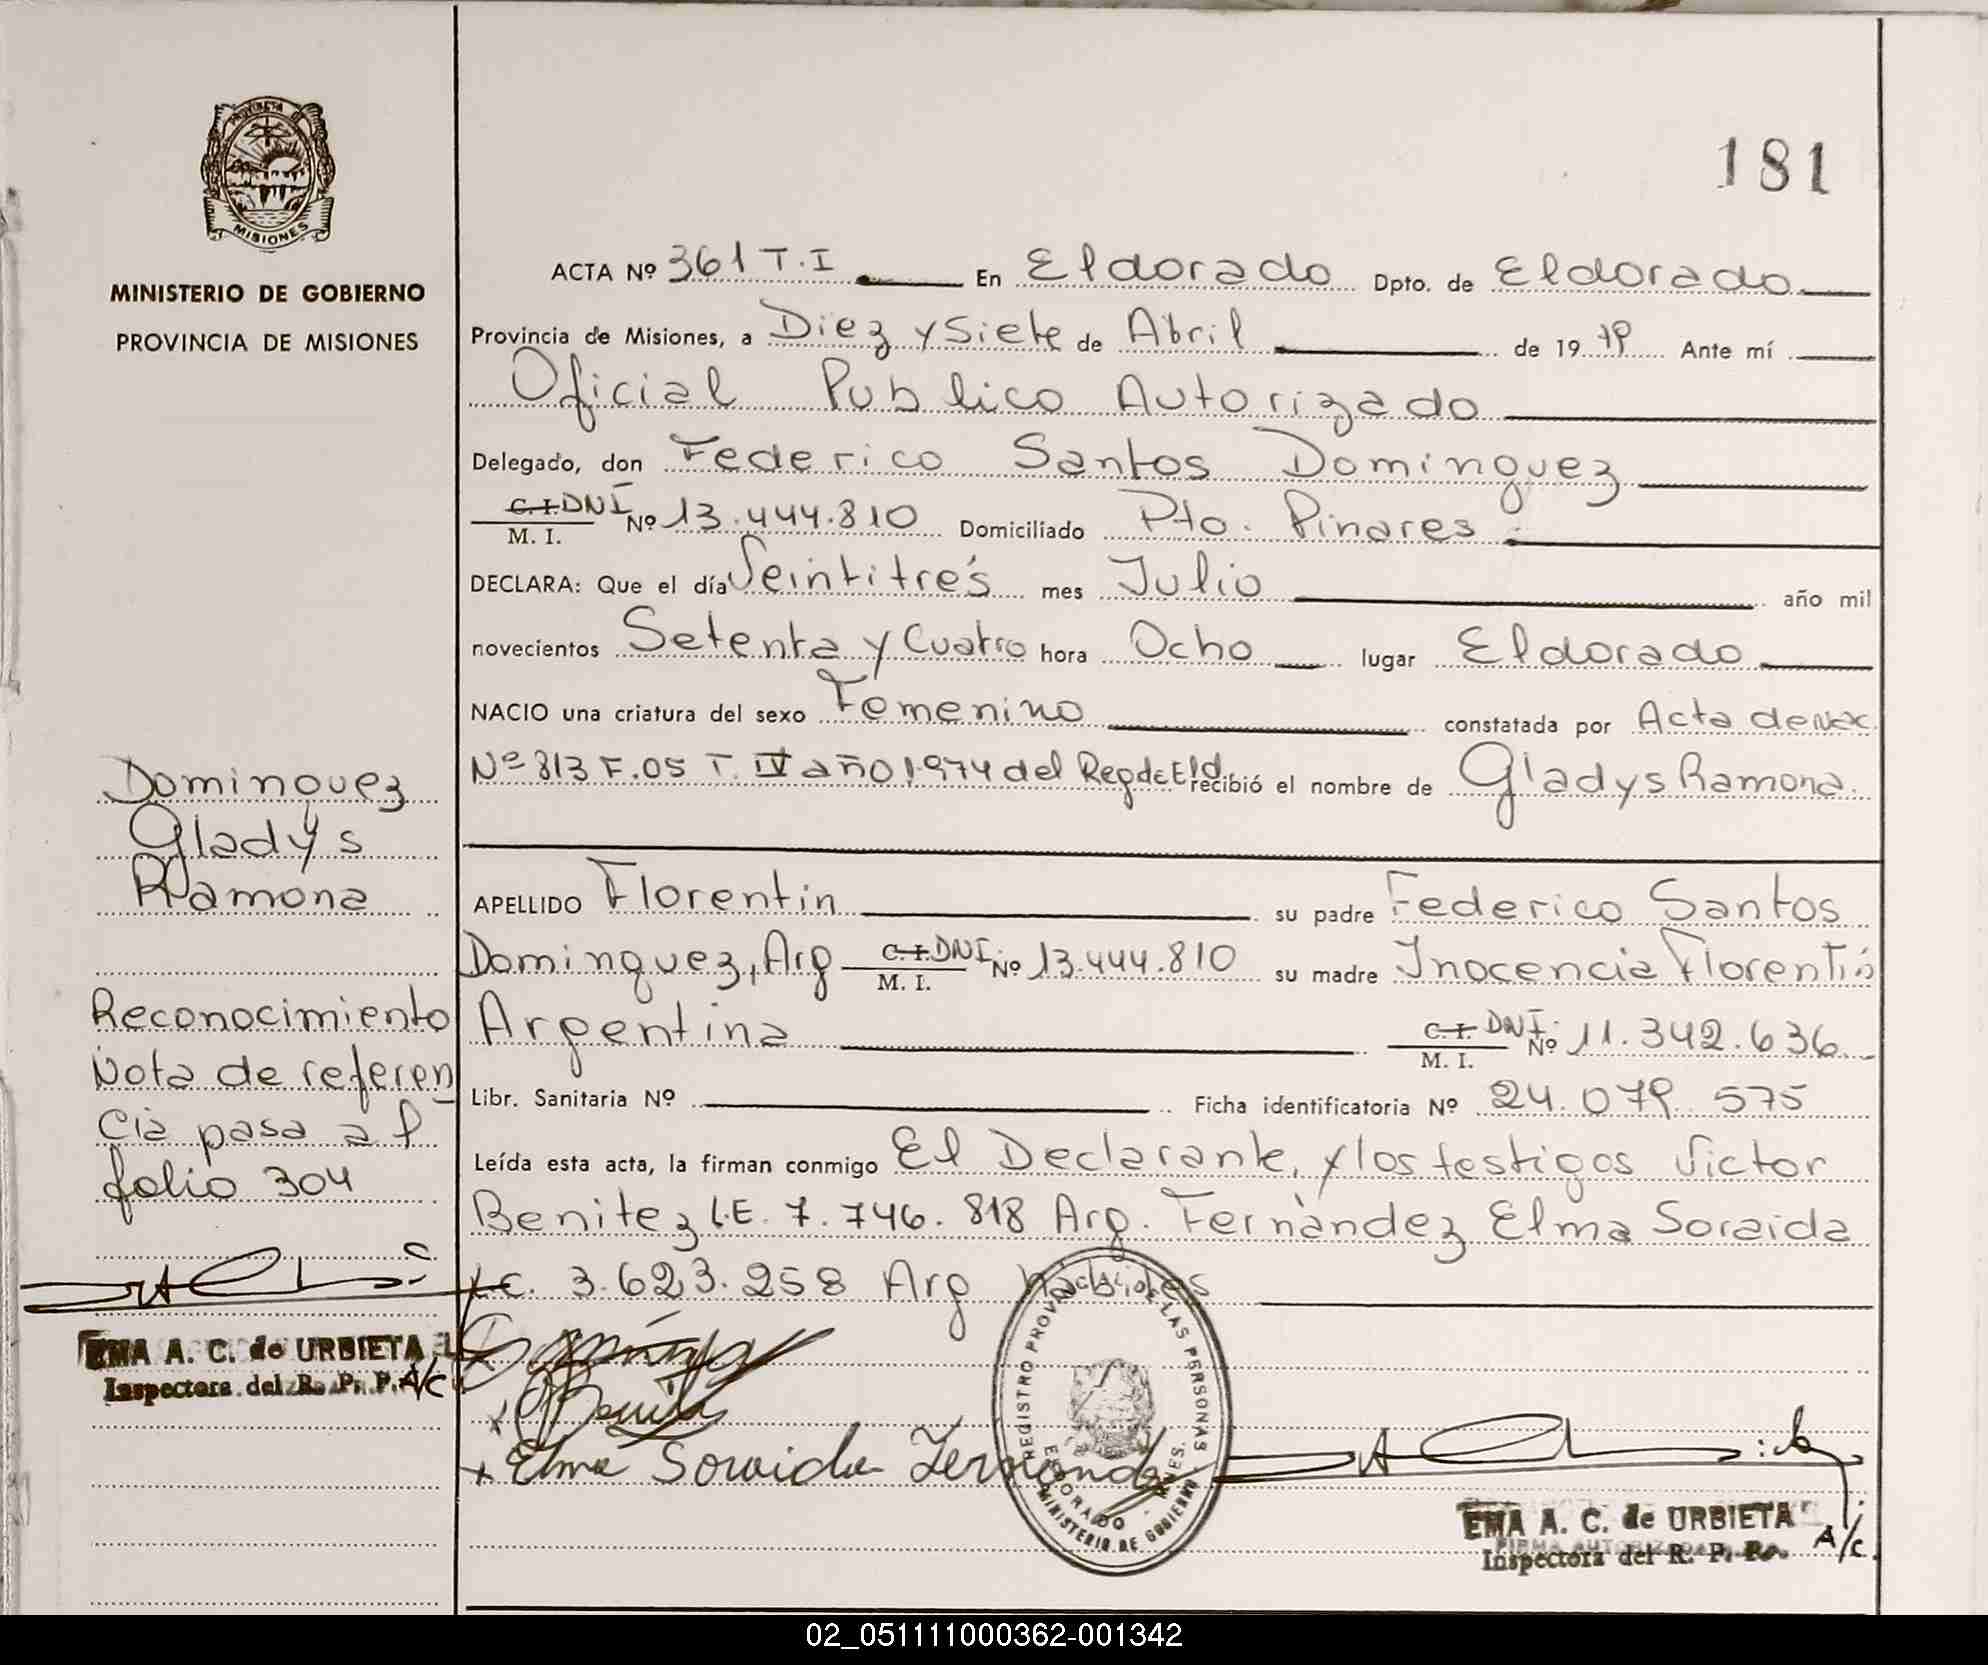 PROVINCIA DE
MISIONES
MINISTERIO DE GOBIERNO
PROVINCIA DE MISIONES
181
ACTA Nº 361 T.I En Eldorado Dpto. de Eldorado
Provincia de Misiones, a Diez y Siete de Abril de 19 79 Ante mí
Oficial Publico Autorizado
Delegado, don Federico Santos Dominguez
C.I. DNI M. I. Nº 13.444.810 Domiciliado Pto. Pinares
DECLARA: Que el día Veintitrés mes Julio año mil
novecientos Setenta y Cuatro hora Ocho lugar Eldorado
NACIO una criatura del sexo Femenino constatada por Acta de Nac
Nº 813 F.05 T. IV año 1.974 del Reg de Eld. recibió el nombre de Gladys Ramona
APELLIDO Florentin su padre Federico Santos
Dominguez, Arg C.I. DNI M. I. Nº 13.444.810 su madre Inocencia Florentín
Argentina C.I. DNI M. I. Nº 11.342.636
Libr. Sanitaria Nº Ficha identificatoria Nº 24.079.575
Leída esta acta, la firman conmigo El Declarante, y los testigos Victor
Benitez L.E. 7.746.818 Arg. Fernández Elma Soraida
L.C. 3.623.258 Arg hábiles
Dominguez
Gladys
Ramona
Reconocimiento
Nota de referen
cia pasa a f
folio 304
EMA A. C. de URBIETA
Inspectora del R. P. P. A/C
Benitez
Elma Soraida Fernandez
REGISTRO PROVINCIAL DE LAS PERSONAS
ELDORADO - MNES.
MINISTERIO DE GOBIERNO
EMA A. C. de URBIETA
FIRMA AUTORIZADA
Inspectora del R. P. P. A/c.
02_051111000362-001342